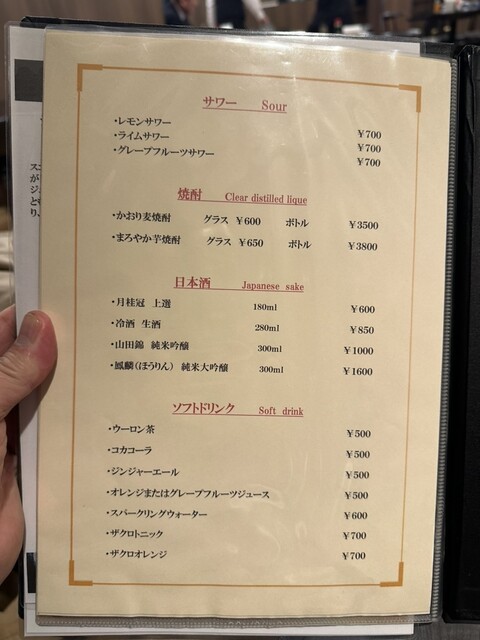 サワー Sour
・レモンサワー ￥700
・ライムサワー ￥700
・グレープフルーツサワー ￥700
焼酎 Clear distilled lique
・かおり麦焼酎 グラス ￥600 ボトル ￥3500
・まろやか芋焼酎 グラス ￥650 ボトル ￥3800
日本酒 Japanese sake
・月桂冠 上選 180ml ￥600
・冷酒 生酒 280ml ￥850
・山田錦 純米吟醸 300ml ￥1000
・鳳麟（ほうりん） 純米大吟醸 300ml ￥1600
ソフトドリンク Soft drink
・ウーロン茶 ￥500
・コカコーラ ￥500
・ジンジャーエール ￥500
・オレンジまたはグレープフルーツジュース ￥500
・スパークリングウォーター ￥600
・ザクロトニック ￥700
・ザクロオレンジ ￥700